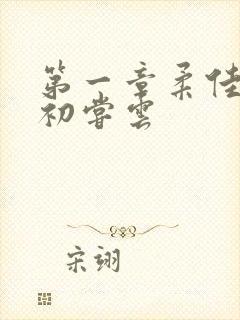 第一章柔佳
初尝云
宋翊